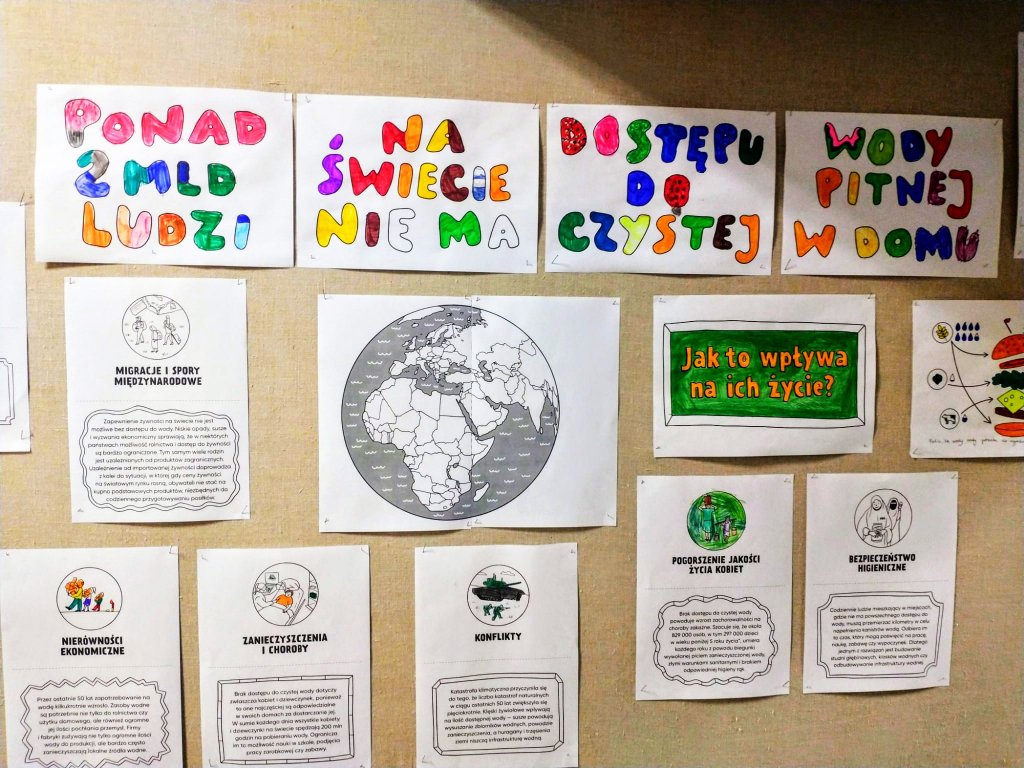 PONAD
2 MLD
LUDZI
NA
ŚWIECIE
NIE MA
DOSTĘPU
DO
CZYSTEJ
WODY
PITNEJ
W DOMU
MIGRACJE I SPORY
MIĘDZYNARODOWE
Zapewnienie żywności na świecie nie jest
możliwe bez dostępu do wody. Niskie opady, susze
i wyzwania ekonomiczny sprawiają, że w niektórych
państwach możliwość rolnictwa i dostęp do żywności
są bardzo ograniczone. Tym samym wiele rodzin
jest uzależnionych od produktów zagranicznych.
Uzależnienie od importowanej żywności doprowadza
z kolei do sytuacji, w której gdy ceny żywności
na światowym rynku rosną, obywateli nie stać na
kupno podstawowych produktów, niezbędnych do
codziennego przygotowania posiłków.
Jak to wpływa
na ich życie?
NIERÓWNOŚCI
EKONOMICZNE
Przez ostatnie 50 lat zapotrzebowanie na
wodę kilkukrotnie wzrosło. Zasoby wodne
są potrzebne nie tylko do rolnictwa czy
użytku domowego, ale również ogromne
jej ilości pochłania przemysł. Firmy
i fabryki zużywają nie tylko ogromne ilości
wody do produkcji, ale bardzo często
zanieczyszczają lokalne źródła wodne.
ZANIECZYSZCZENIA
I CHOROBY
Brak dostępu do czystej wody dotyczy
zwłaszcza kobiet i dziewczynek, ponieważ
to one najczęściej są odpowiedzialne
w swoich domach za dostarczanie jej.
W sumie każdego dnia wszystkie kobiety
i dziewczynki na świecie spędzają 200 mln
godzin na pobieraniu wody. Ogranicza
im to możliwość nauki w szkole, podjęcia
pracy zarobkowej czy zabawy.
KONFLIKTY
Katastrofa klimatyczna przyczyniła się
do tego, że liczba katastrof naturalnych
w ciągu ostatnich 50 lat zwiększyła się
pięciokrotnie. Klęski żywiołowe wpływają
na ilość dostępnej wody – susze powodują
wysuszanie zbiorników wodnych, powodzie
zanieczyszczenia, a huragany i trzęsienia
ziemi niszczą infrastrukturę wodną.
POGORSZENIE JAKOŚCI
ŻYCIA KOBIET
Brak dostępu do czystej wody
powoduje wzrost zachorowalności na
choroby zakaźne. Szacuje się, że około
829 000 osób, w tym 297 000 dzieci
w wieku poniżej 5 roku życia*, umiera
każdego roku z powodu biegunki
wywołanej piciem zanieczyszczonej wody,
złymi warunkami sanitarnymi i brakiem
odpowiedniej higieny rąk.
BEZPIECZEŃSTWO
HIGIENICZNE
Codziennie ludzie mieszkający w miejscach,
gdzie nie ma powszechnego dostępu do
wody, muszą przemierzać kilometry w celu
napełnienia kanistrów wodą. Odbiera im
to czas, który mogą poświęcić na pracę,
naukę, zabawę czy wypoczynek. Dlatego
jednym z rozwiązań jest budowanie
studni głębinowych, kiosków wodnych czy
odbudowywanie infrastruktury wodnej.